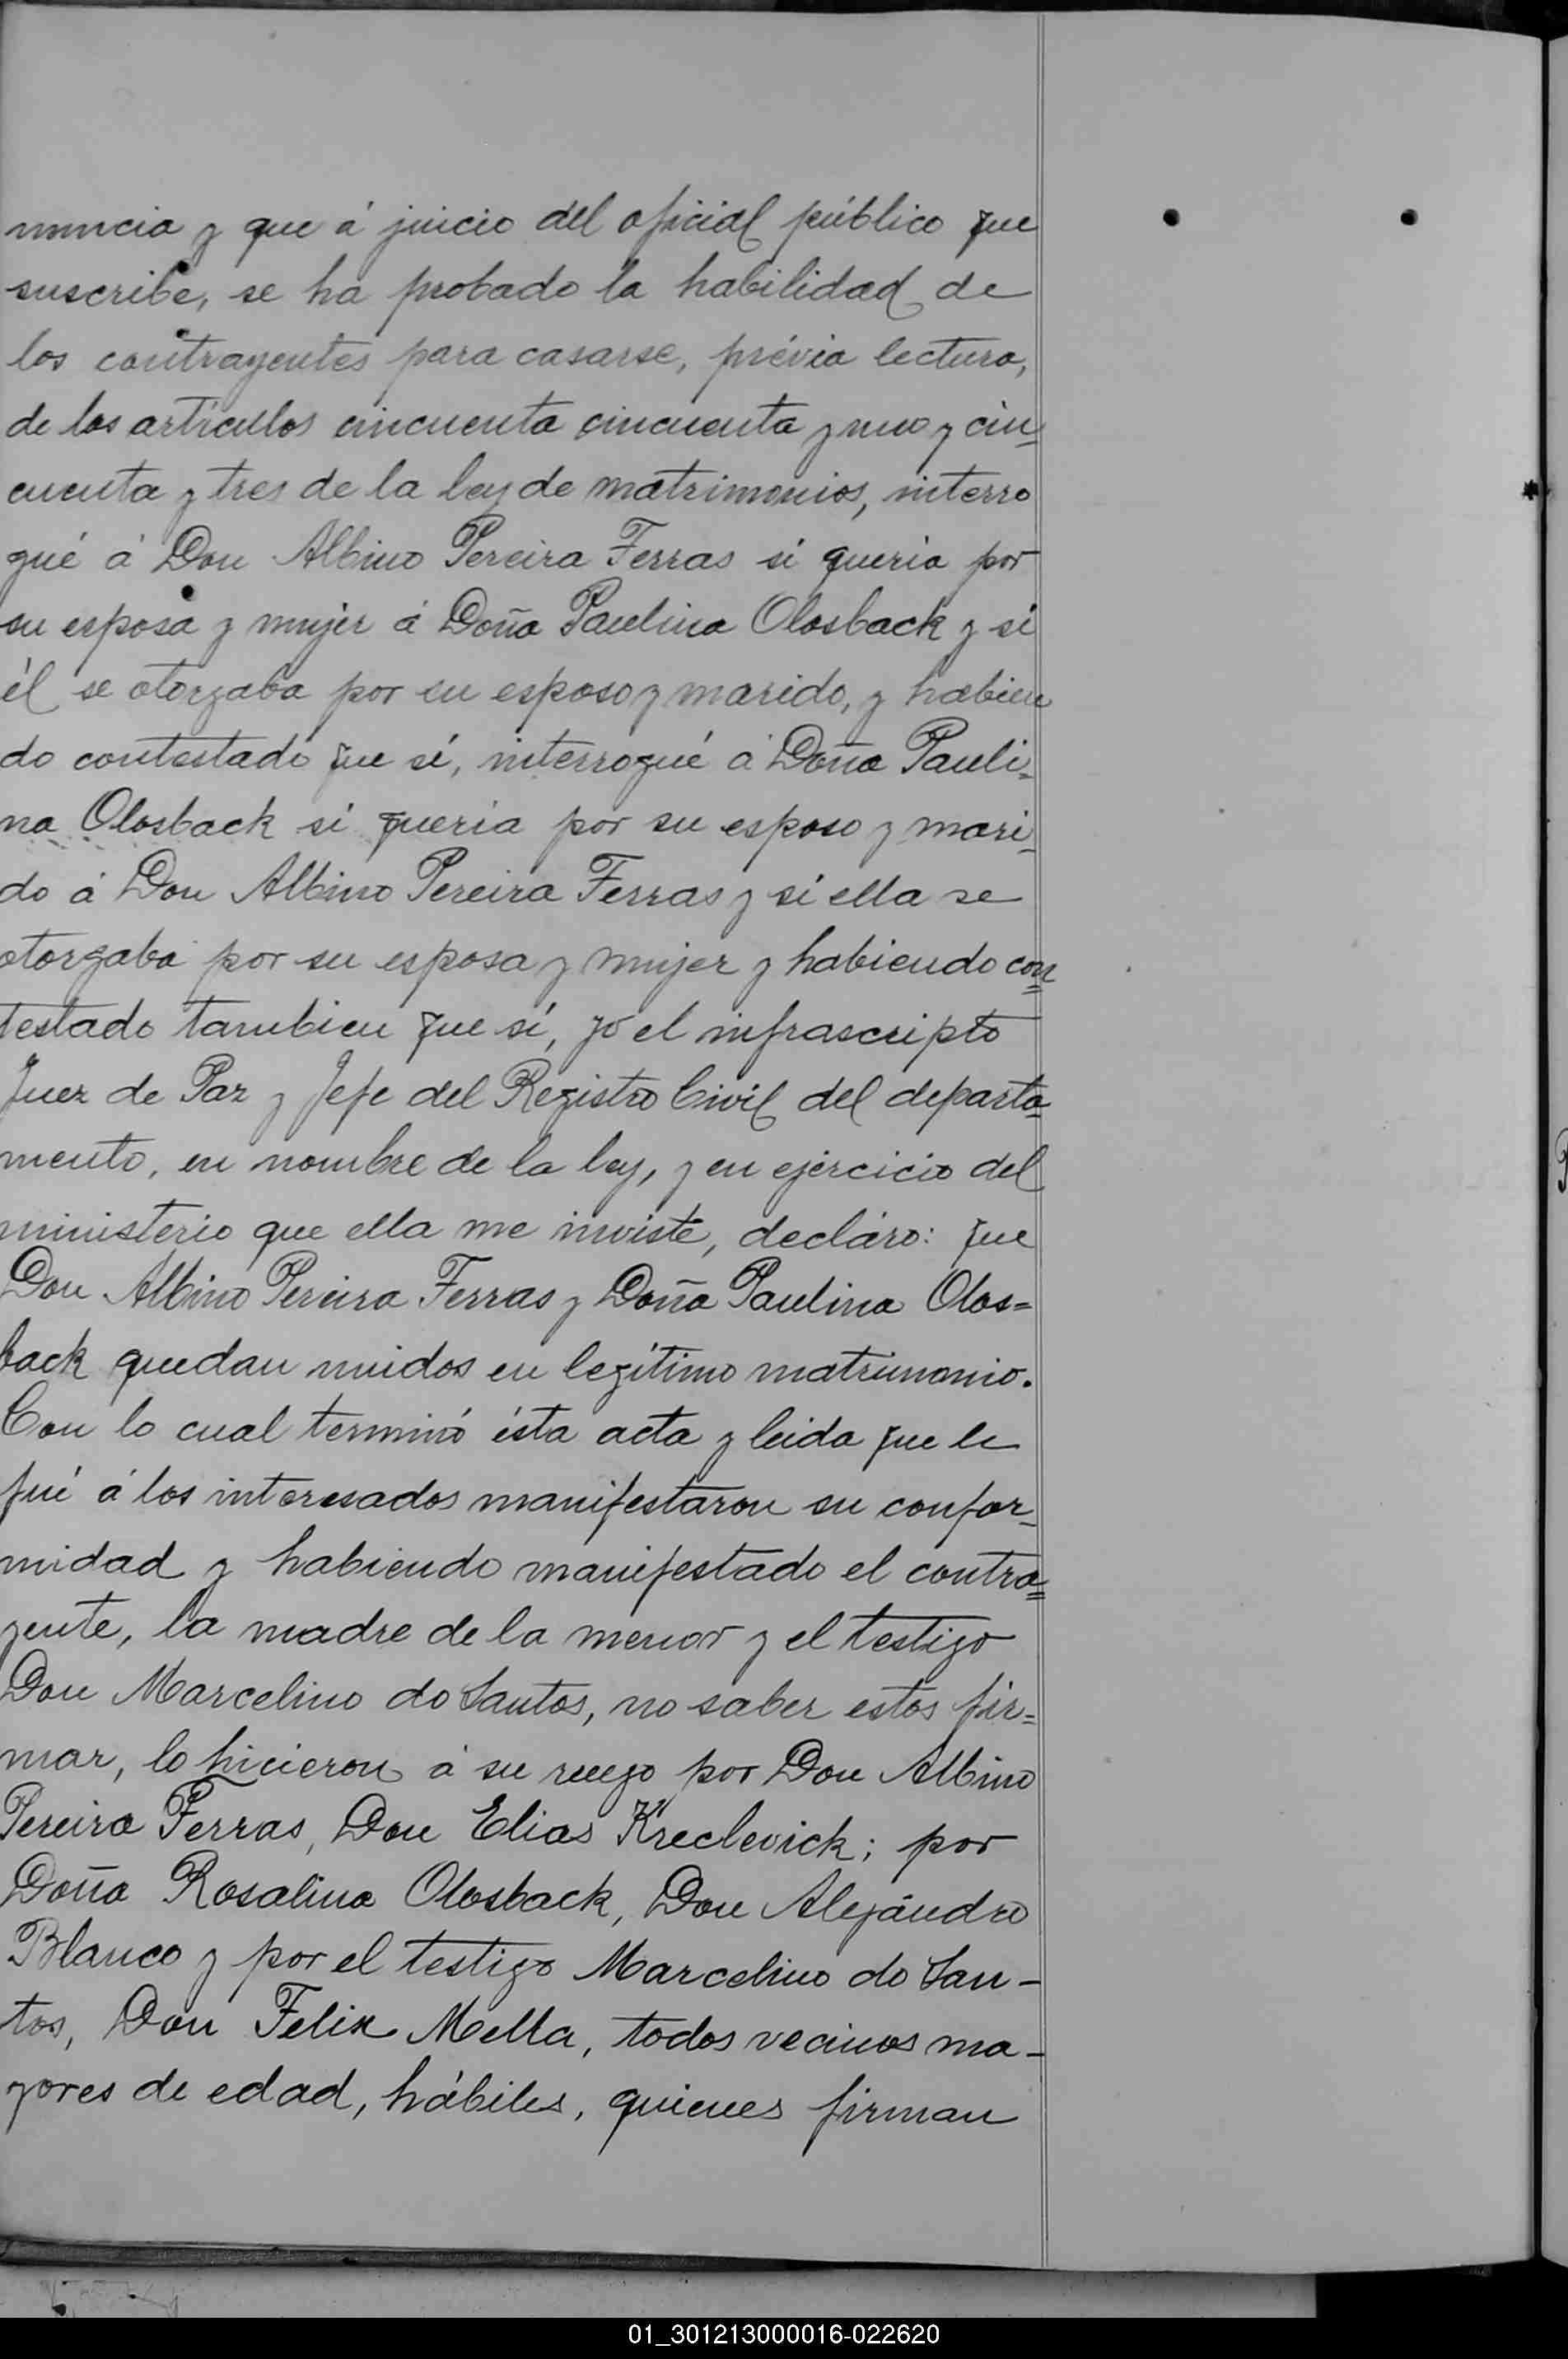 nuncia y que á juicio del oficial público que
suscribe, se ha probado la habilidad de
los contrayentes para casarse, prévia lectura,
de los artículos cincuenta cincuenta y uno y cin=
cuenta y tres de la ley de matrimonios, interro
gué á Don Albino Pereira Ferras si queria por
su esposa y mujer á Doña Paulina Olosback y si
él se otorgaba por su esposo y marido, y habien
do contestado que sí, interrogué á Doña Pauli=
na Olosback si queria por su esposo y mari_
do á Don Albino Pereira Ferras y si ella se
otorgaba por su esposa y mujer y habiendo con=
testado tambien que sí, yo el infrascripto
Juez de Paz y Jefe del Registro Civil del departa=
mento, en nombre de la ley, y en ejercicio del
ministerio que ella me inviste, decláro: que
Don Albino Pereira Ferras y Doña Paulina Olos=
back quedan unidos en legítimo matrimonio.
Con lo cual terminó ésta acta y leida que le
fué á los interesados manifestaron su confor_
midad y habiendo manifestado el contra=
yente, la madre de la menor y el testigo
Don Marcelino do Santos, no saber estos fir=
mar, lo hicieron á su ruego por Don Albino
Pereira Ferras, Don Elias Kreclevick; por
Doña Rosalina Olosback, Don Alejándro
Blanco y por el testigo Marcelino do San-
tos, Don Felix Mella, todos vecinos ma-
yores de edad, hábiles, quienes firman
01_301213000016-022620